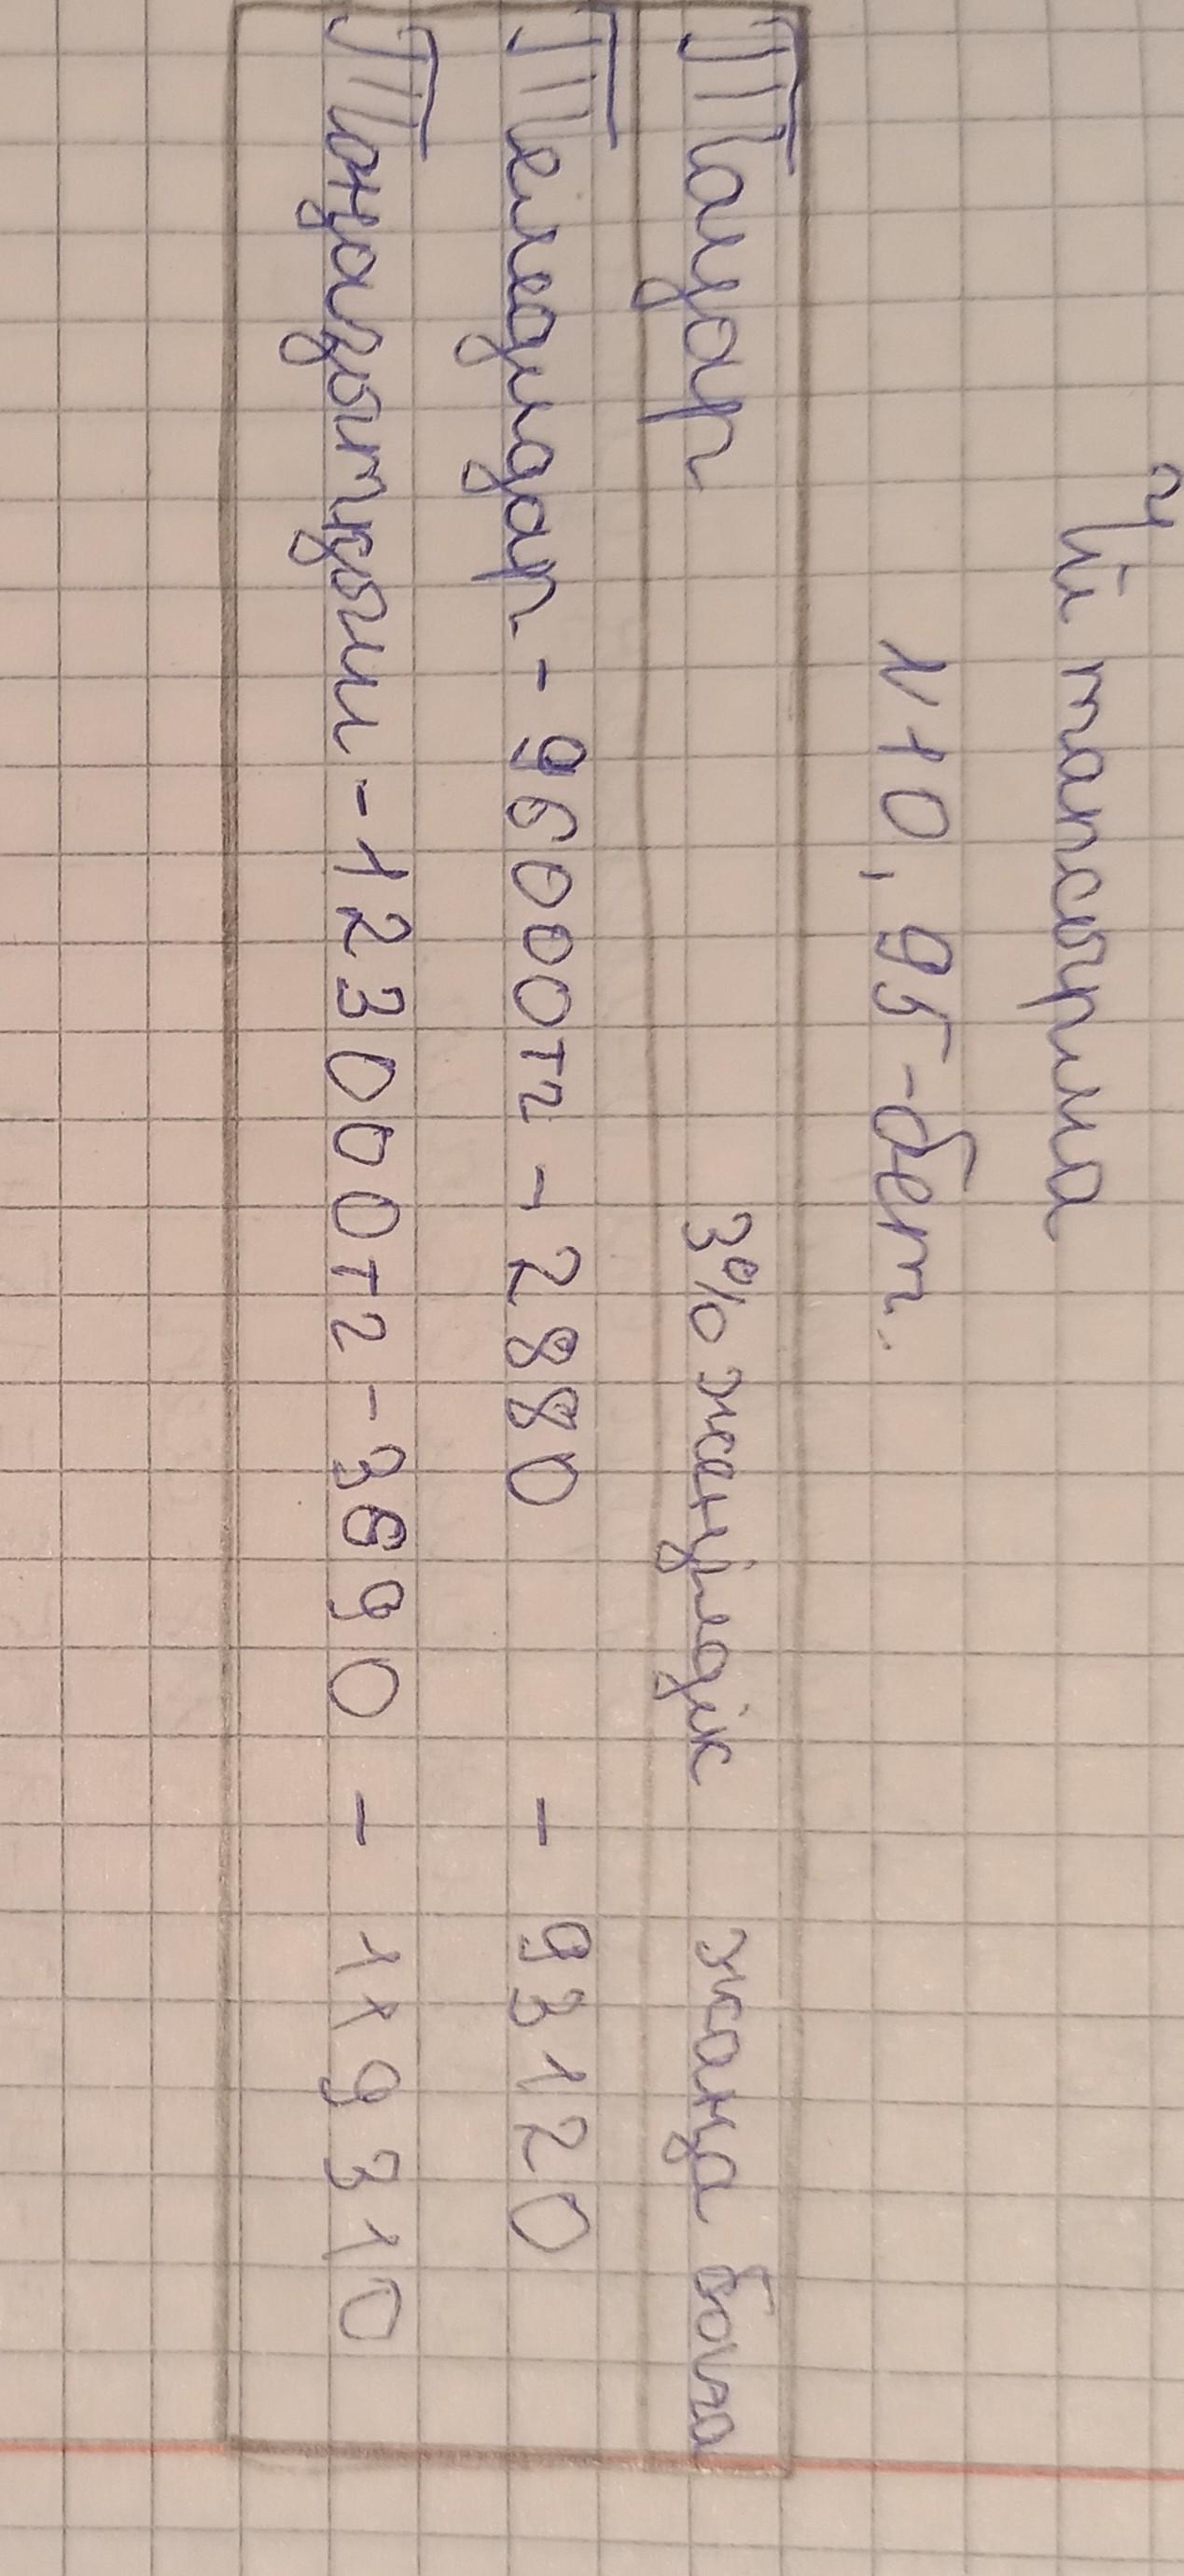 Үй тапсырма
N10, 95-бет.
Тауар 3% жеңілдік жаңа баға
Теледидар - 96000тг - 2880 - 93120
Тоңазытқыш - 123000тг - 3690 - 119310